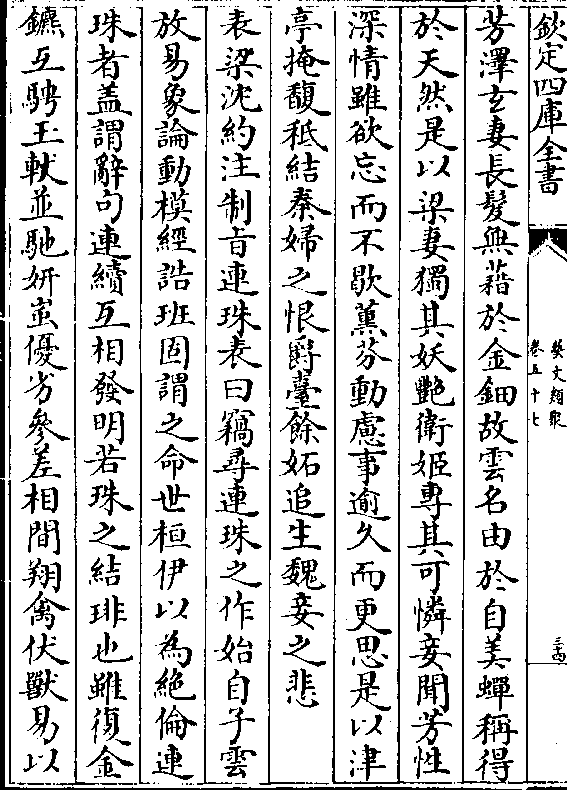 欽定四庫全書
藝文類聚
卷五十七
三十四
芳澤玄妻長髮無藉於金鈿故雲名由於自美蟬稱得
於天然是以梁妻獨其妖艷衛姬專其可憐妾聞芳性
深情雖欲忘而不歇薰芬動慮事逾久而更思是以津
亭掩馥秖結秦婦之恨爵臺餘妬追生魏妾之悲
表梁沈約注制旨連珠表曰竊尋連珠之作始自子雲
放易象論動模經誥班固謂之命世桓伊以為絕倫連
珠者蓋謂辭句連續互相發明若珠之結琲也雖復金
鑣互騁玉軑並馳妍蚩優劣參差相間翔禽伏獸易以